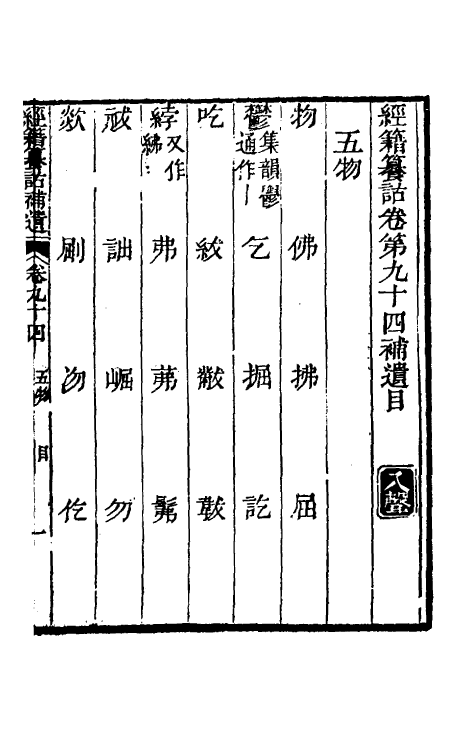 經籍籑詁卷第九十四補遺目
入聲
五物
物 佛 拂 屈
鬱 集韻鬱通作丨 乞 掘 訖
吃 紱 黻 韍
綍 又作紼 弗 茀 髴
祓 詘 崛 勿
欻 刷 岉 仡
經籍籑詁補遺 卷九十四 五物 目 一